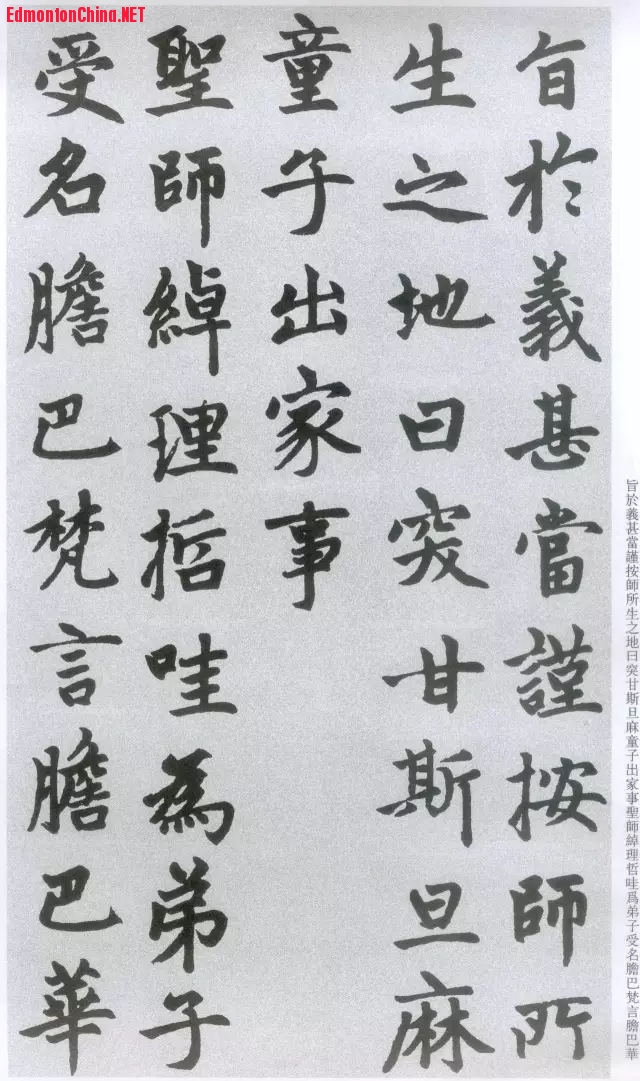 EdmontonChina.NET
旨於義甚當謹按師所
生之地曰突甘斯旦麻
童子出家事
聖師綽理哲哇為弟子
受名膽巴梵言膽巴華
旨於義甚當謹按師所生之地曰突甘斯旦麻童子出家事聖師綽理哲哇爲弟子受名膽巴梵言膽巴華